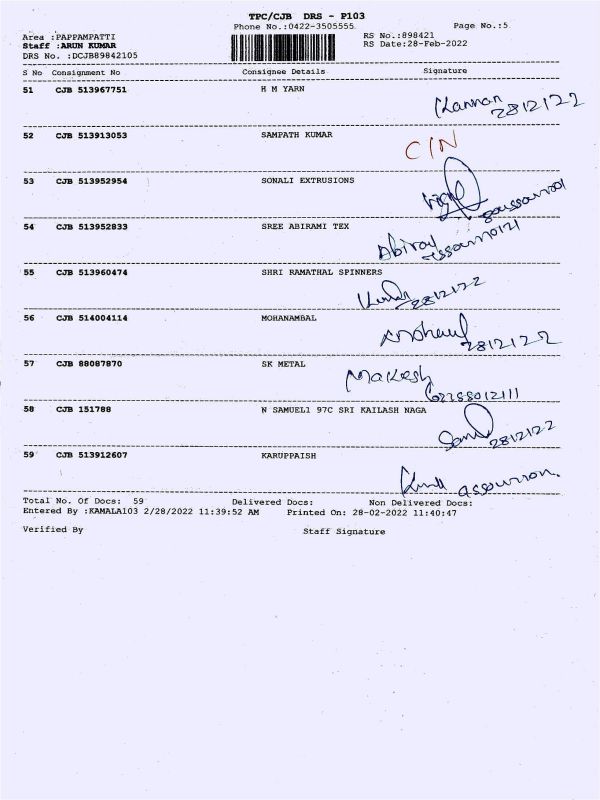 TPC/CJB DRS - P103
Phone No.:0422-3505555
Page No.:5
Area :PAPPAMPATTI
RS No.:898421
Staff :ARUN KUMAR
RS Date:28-Feb-2022
DRS No. :DCJB89842105
S No Consignment No Consignee Details Signature
51 CJB 513967751 H M YARN
Kannan 28/2/22
52 CJB 513913053 SAMPATH KUMAR
C/N
53 CJB 513952954 SONALI EXTRUSIONS
54 CJB 513952833 SREE ABIRAMI TEX
55 CJB 513960474 SHRI RAMATHAL SPINNERS
28/2/22
56 CJB 514004114 MOHANAMBAL
28/2/22
57 CJB 88087870 SK METAL
Makesh
58 CJB 151788 N SAMUEL1 97C SRI KAILASH NAGA
28/2/22
59 CJB 513912607 KARUPPAISH
Total No. Of Docs: 59 Delivered Docs: Non Delivered Docs:
Entered By :KAMALA103 2/28/2022 11:39:52 AM Printed On: 28-02-2022 11:40:47
Verified By Staff Signature